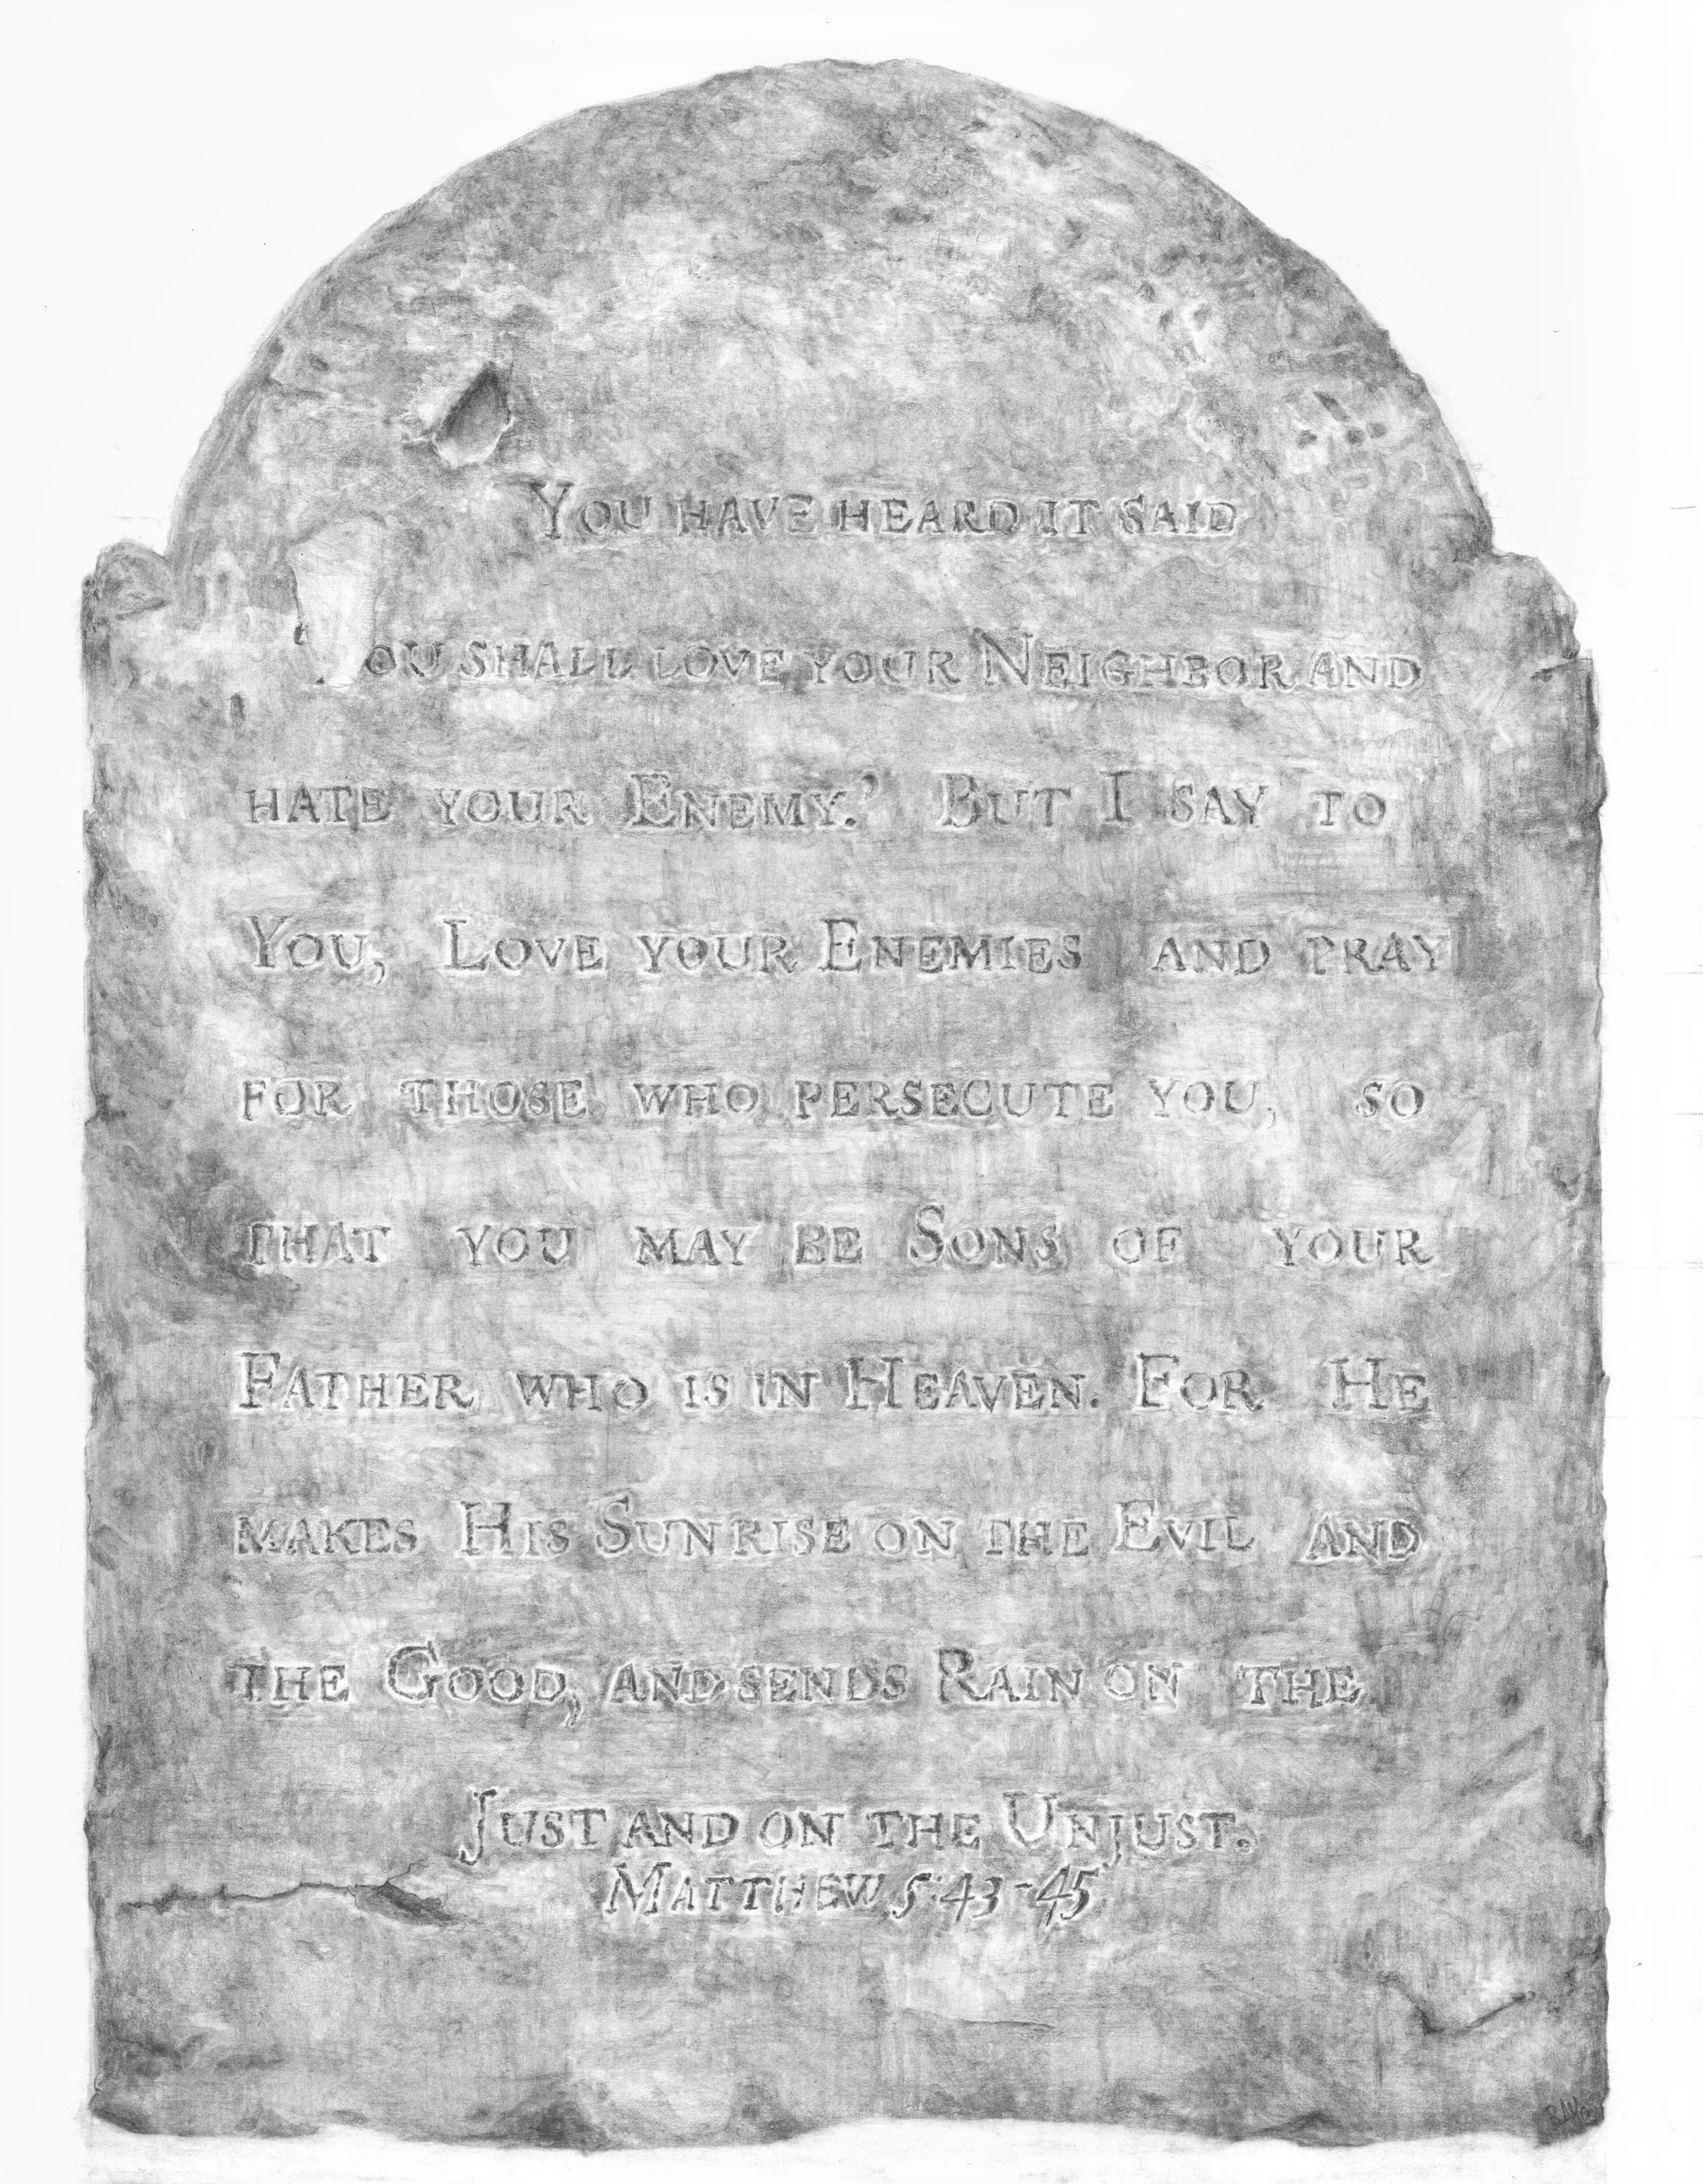 You have heard it said
ou shall love your Neighbor and
hate your Enemy.' But I say to
You, Love your Enemies and pray
for those who persecute you, so
that you may be Sons of your
Father who is in Heaven. For He
makes His Sunrise on the Evil and
the Good, and sends Rain on the
Just and on the Unjust.
Matthew 5:43-45